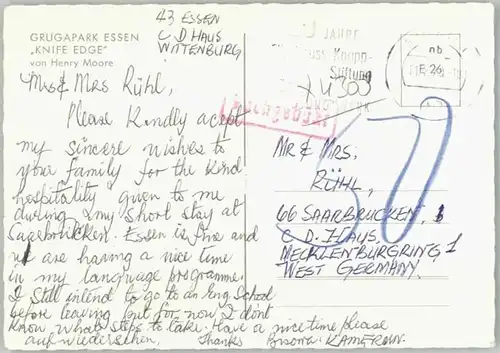 43 ESSEN
C D HAUS
WITTENBURG
GRUGAPARK ESSEN
„KNIFE EDGE"
von Henry Moore
JAHRE
Krupp-
Stiftung
X 4309
nb
Mrs & Mrs Rühl,
Please Kindly acept
my sincere wishes to
your family for the kind
hospitality given to me
during my short stay at
Saarbrücken. Essen is fine and
we are having a nice time
in my language programme.
I still intend to go to an Eng. School
before leaving but for now I don't
know whats steps to take. Have a nice time please
auf wiedersehen, Thanks KAMEROUN.
50
MR & MRS.
RÜHL,
66 SAARBRÜCKEN,
C D. HAUS,
MECKLENBURGRING 1
WEST GERMANY.